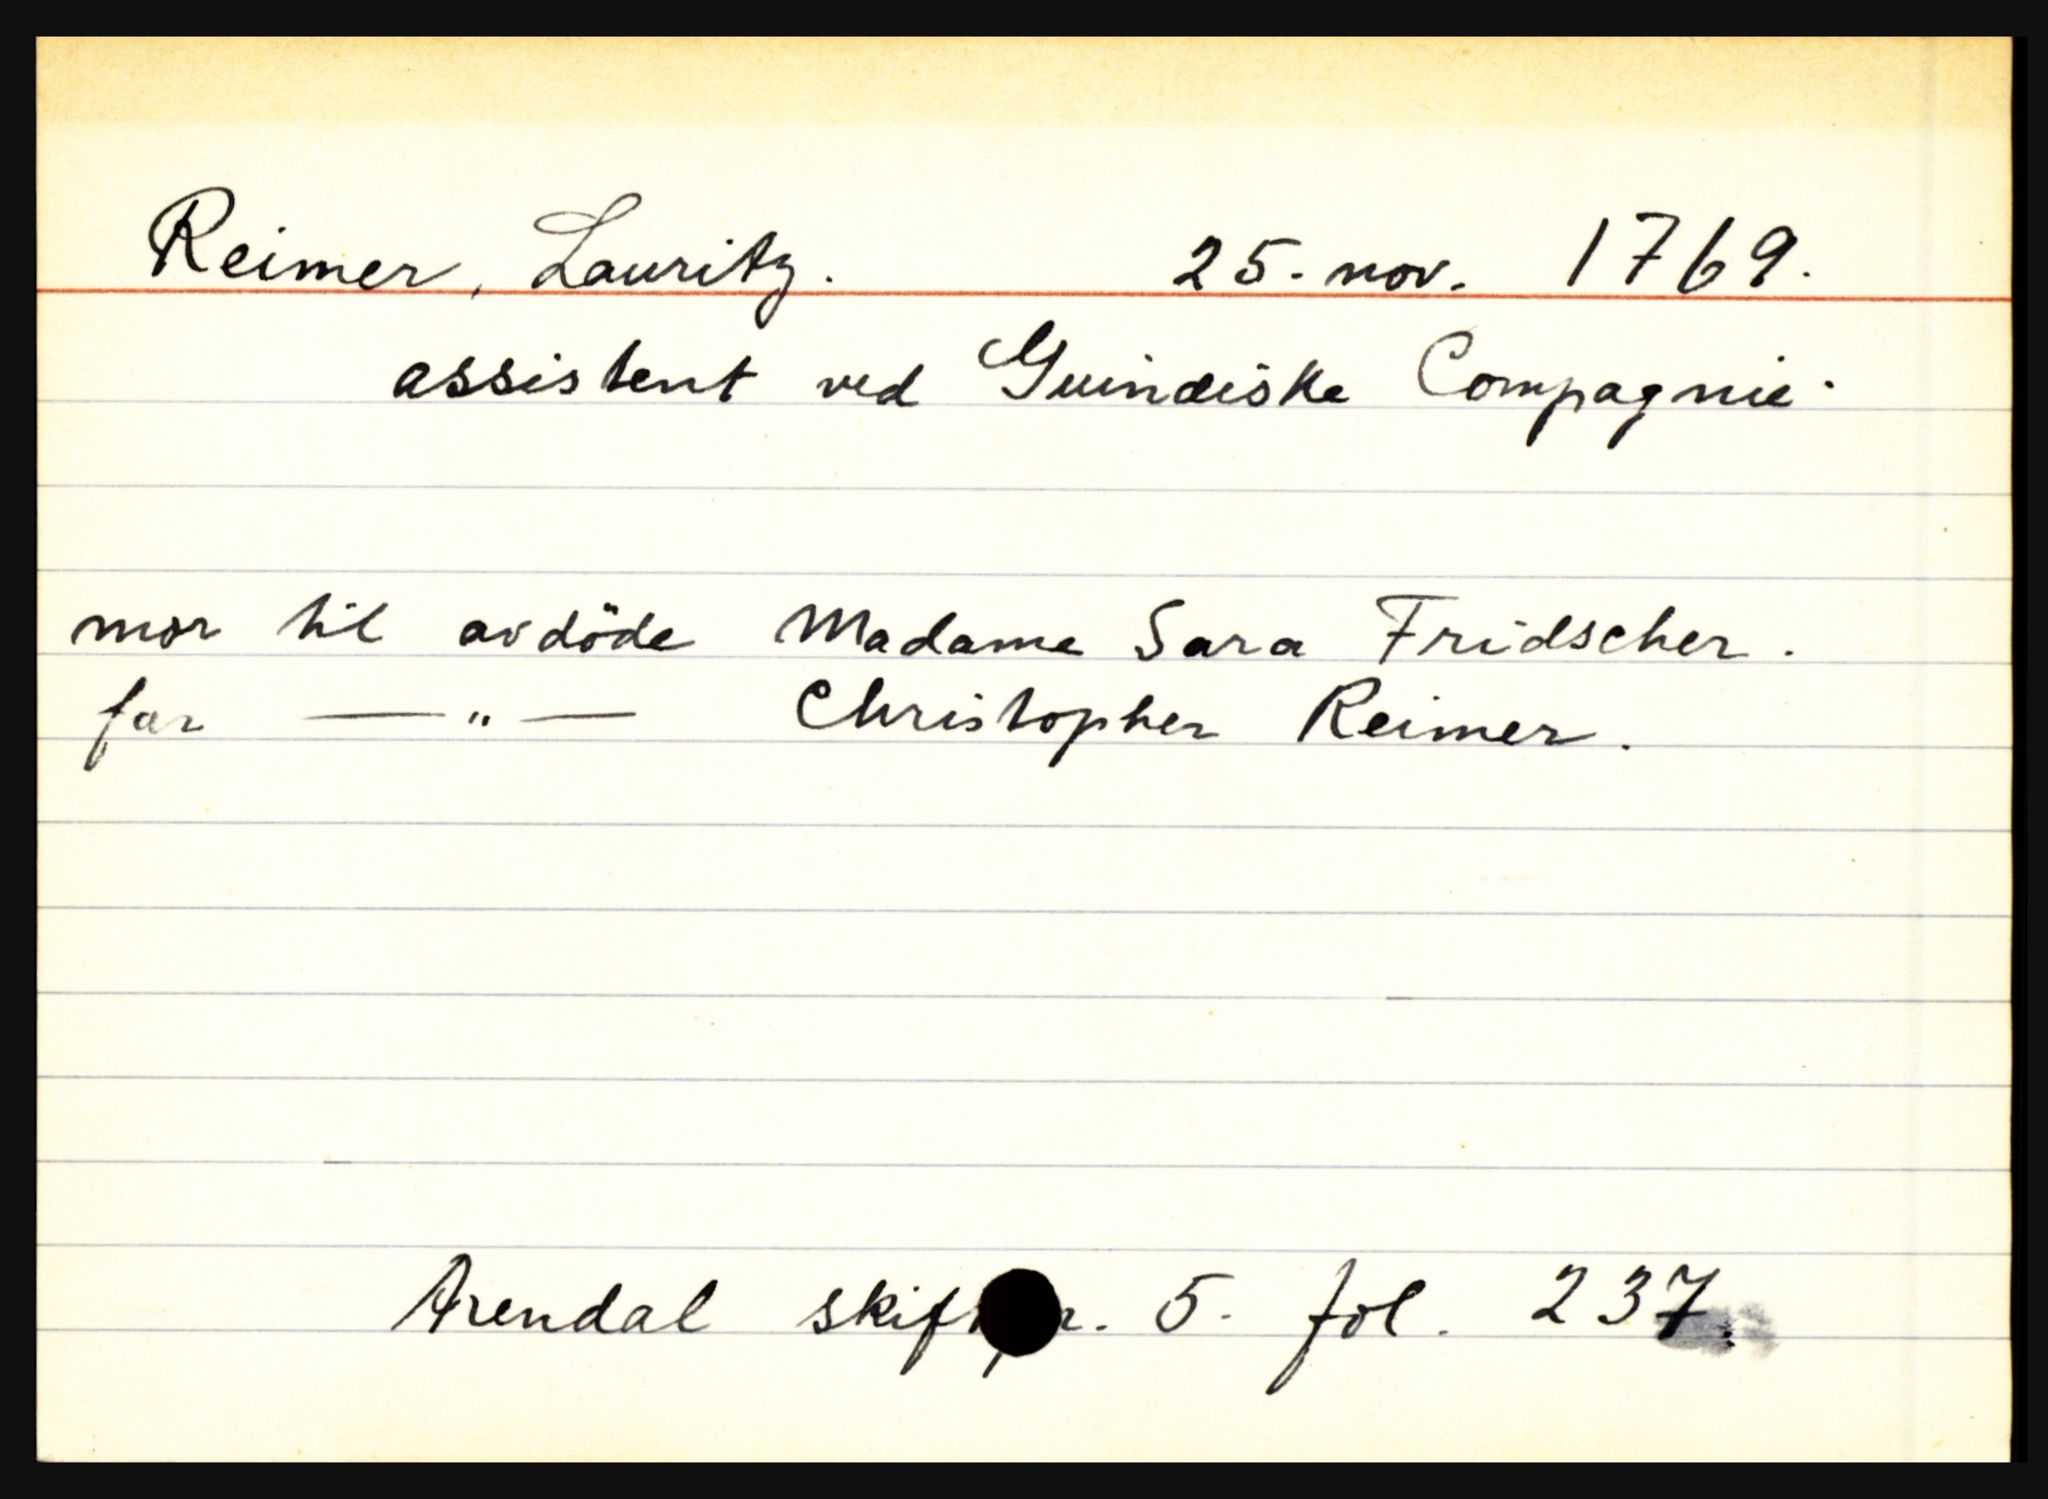 Reimer, Lauritz. 25. nov. 1769.
assistent ved Guinæiske Compagnie.
mor til avdöde Madame Sara Fridscher.
far — " — Christopher Reimer.
Arendal 5. fol. 237.